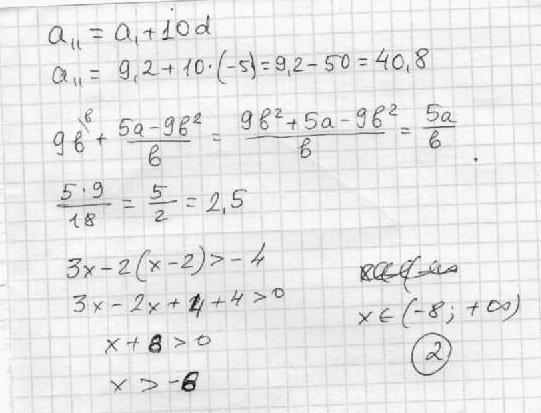 a₁₁ = a₁ + 10d
a₁₁ = 9,2 + 10·(-5) = 9,2 - 50 = 40,8
9b^b + (5a - 9b²)/b = (9b² + 5a - 9b²)/b = 5a/b.
(5·9)/18 = 5/2 = 2,5
3x - 2(x - 2) > -4
3x - 2x + 4 + 4 > 0
x + 8 > 0
x > -8
x ∈ (-8; +∞)
2